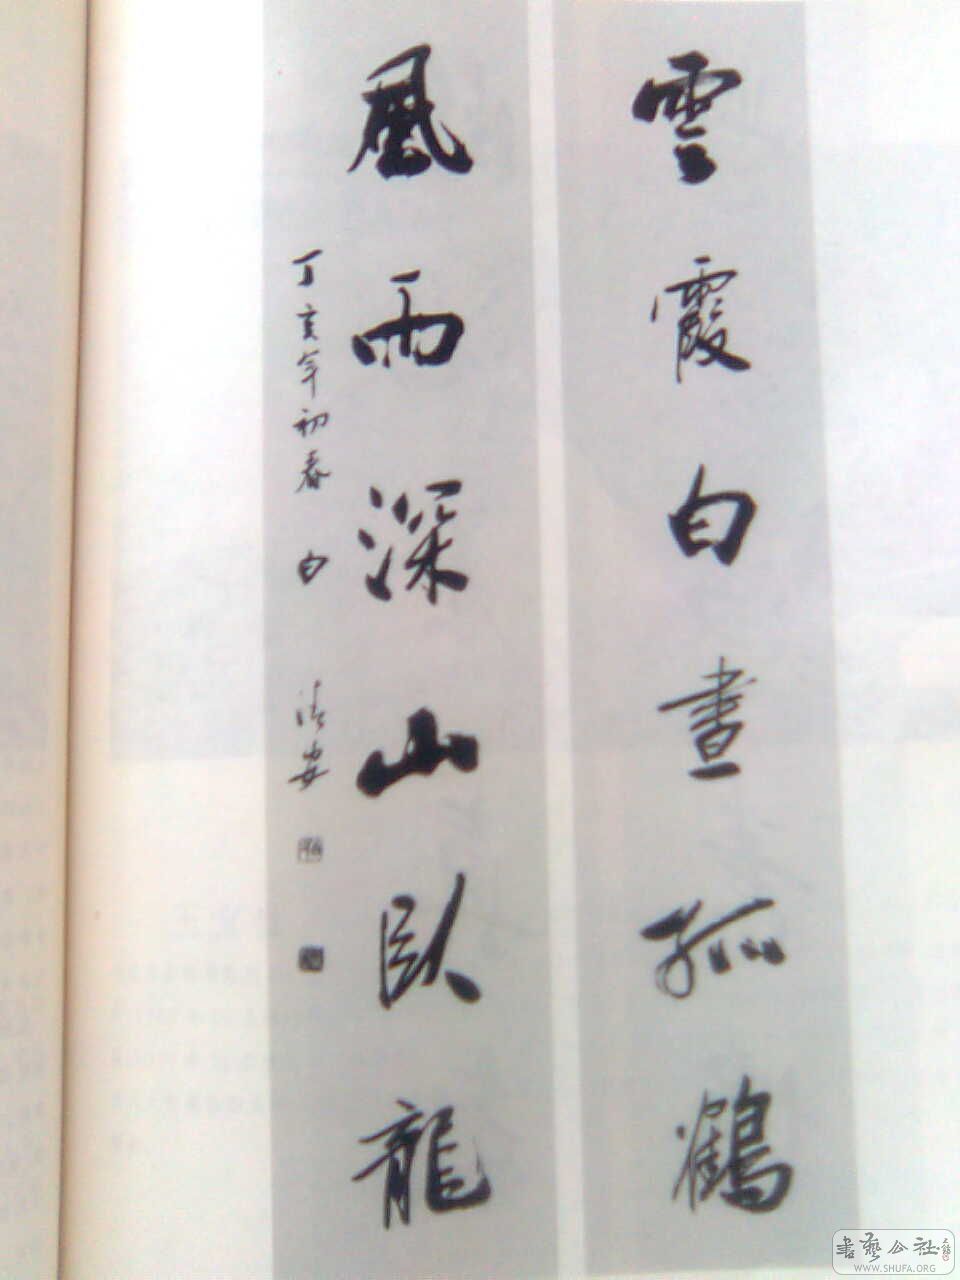 雲霞白晝孤鶴
風雨深山臥龍
丁亥年初春 白清安
書藝公社
WWW.SHUFA.ORG